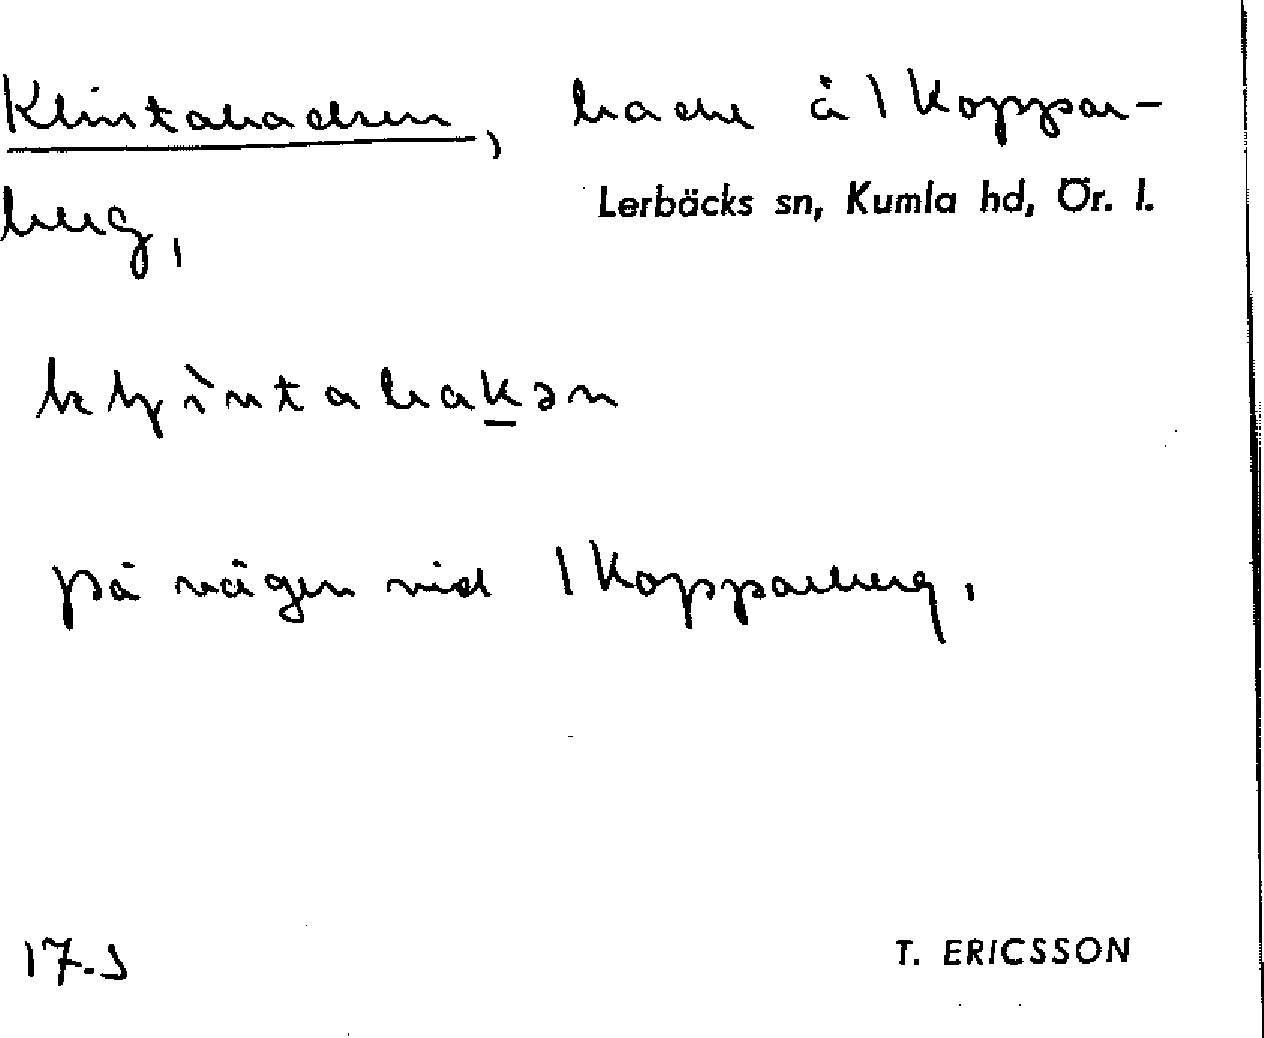 Klintabacken, backe å 1 Koppar-
berg,
Lerbäcks sn, Kumla hd, Ör. l.
klintabakən
på vägen vid 1 Kopparberg,
T. ERICSSON